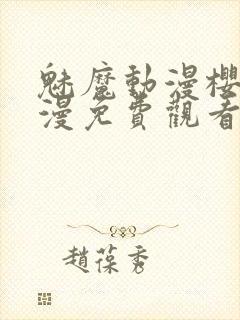 魅魔動漫櫻
漫免費觀看
趙葆秀